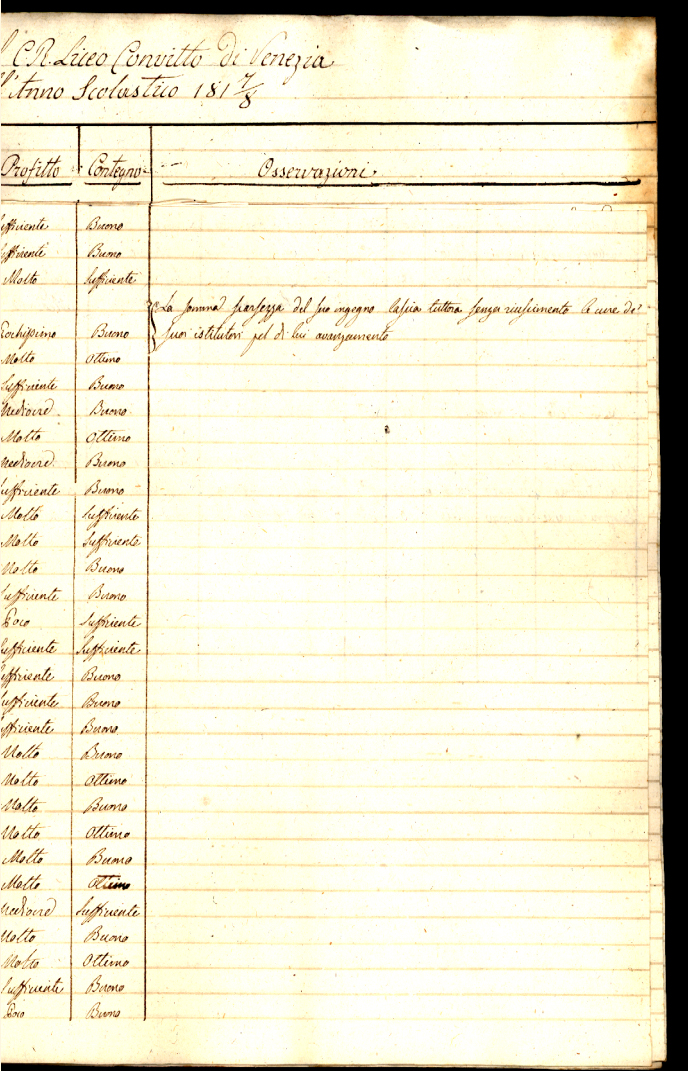 C.R. Liceo Convitto di Venezia
Anno Scolastico 1817/8
Profitto Contegno Osservazioni
Sufficiente Buono
Sufficiente Buono
Molto Sufficiente
La somma scarsezza del suo ingegno lascia tuttora senza riuscimento le cure de'
Pochissimo Buono suoi istitutori pel di lui avanzamento
Molto Ottimo
Sufficiente Buono
Mediocre Buono
Molto Ottimo
Mediocre Buono
Sufficiente Buono
Molto Sufficiente
Molto Sufficiente
Molto Buono
Sufficiente Buono
Poco Sufficiente
Sufficiente Sufficiente
Sufficiente Buono
Sufficiente Buono
Sufficiente Buono
Molto Buono
Molto Ottimo
Molto Buono
Molto Ottimo
Molto Buono
Molto Ottimo
Mediocre Sufficiente
Molto Buono
Molto Ottimo
Sufficiente Buono
Poco Buono